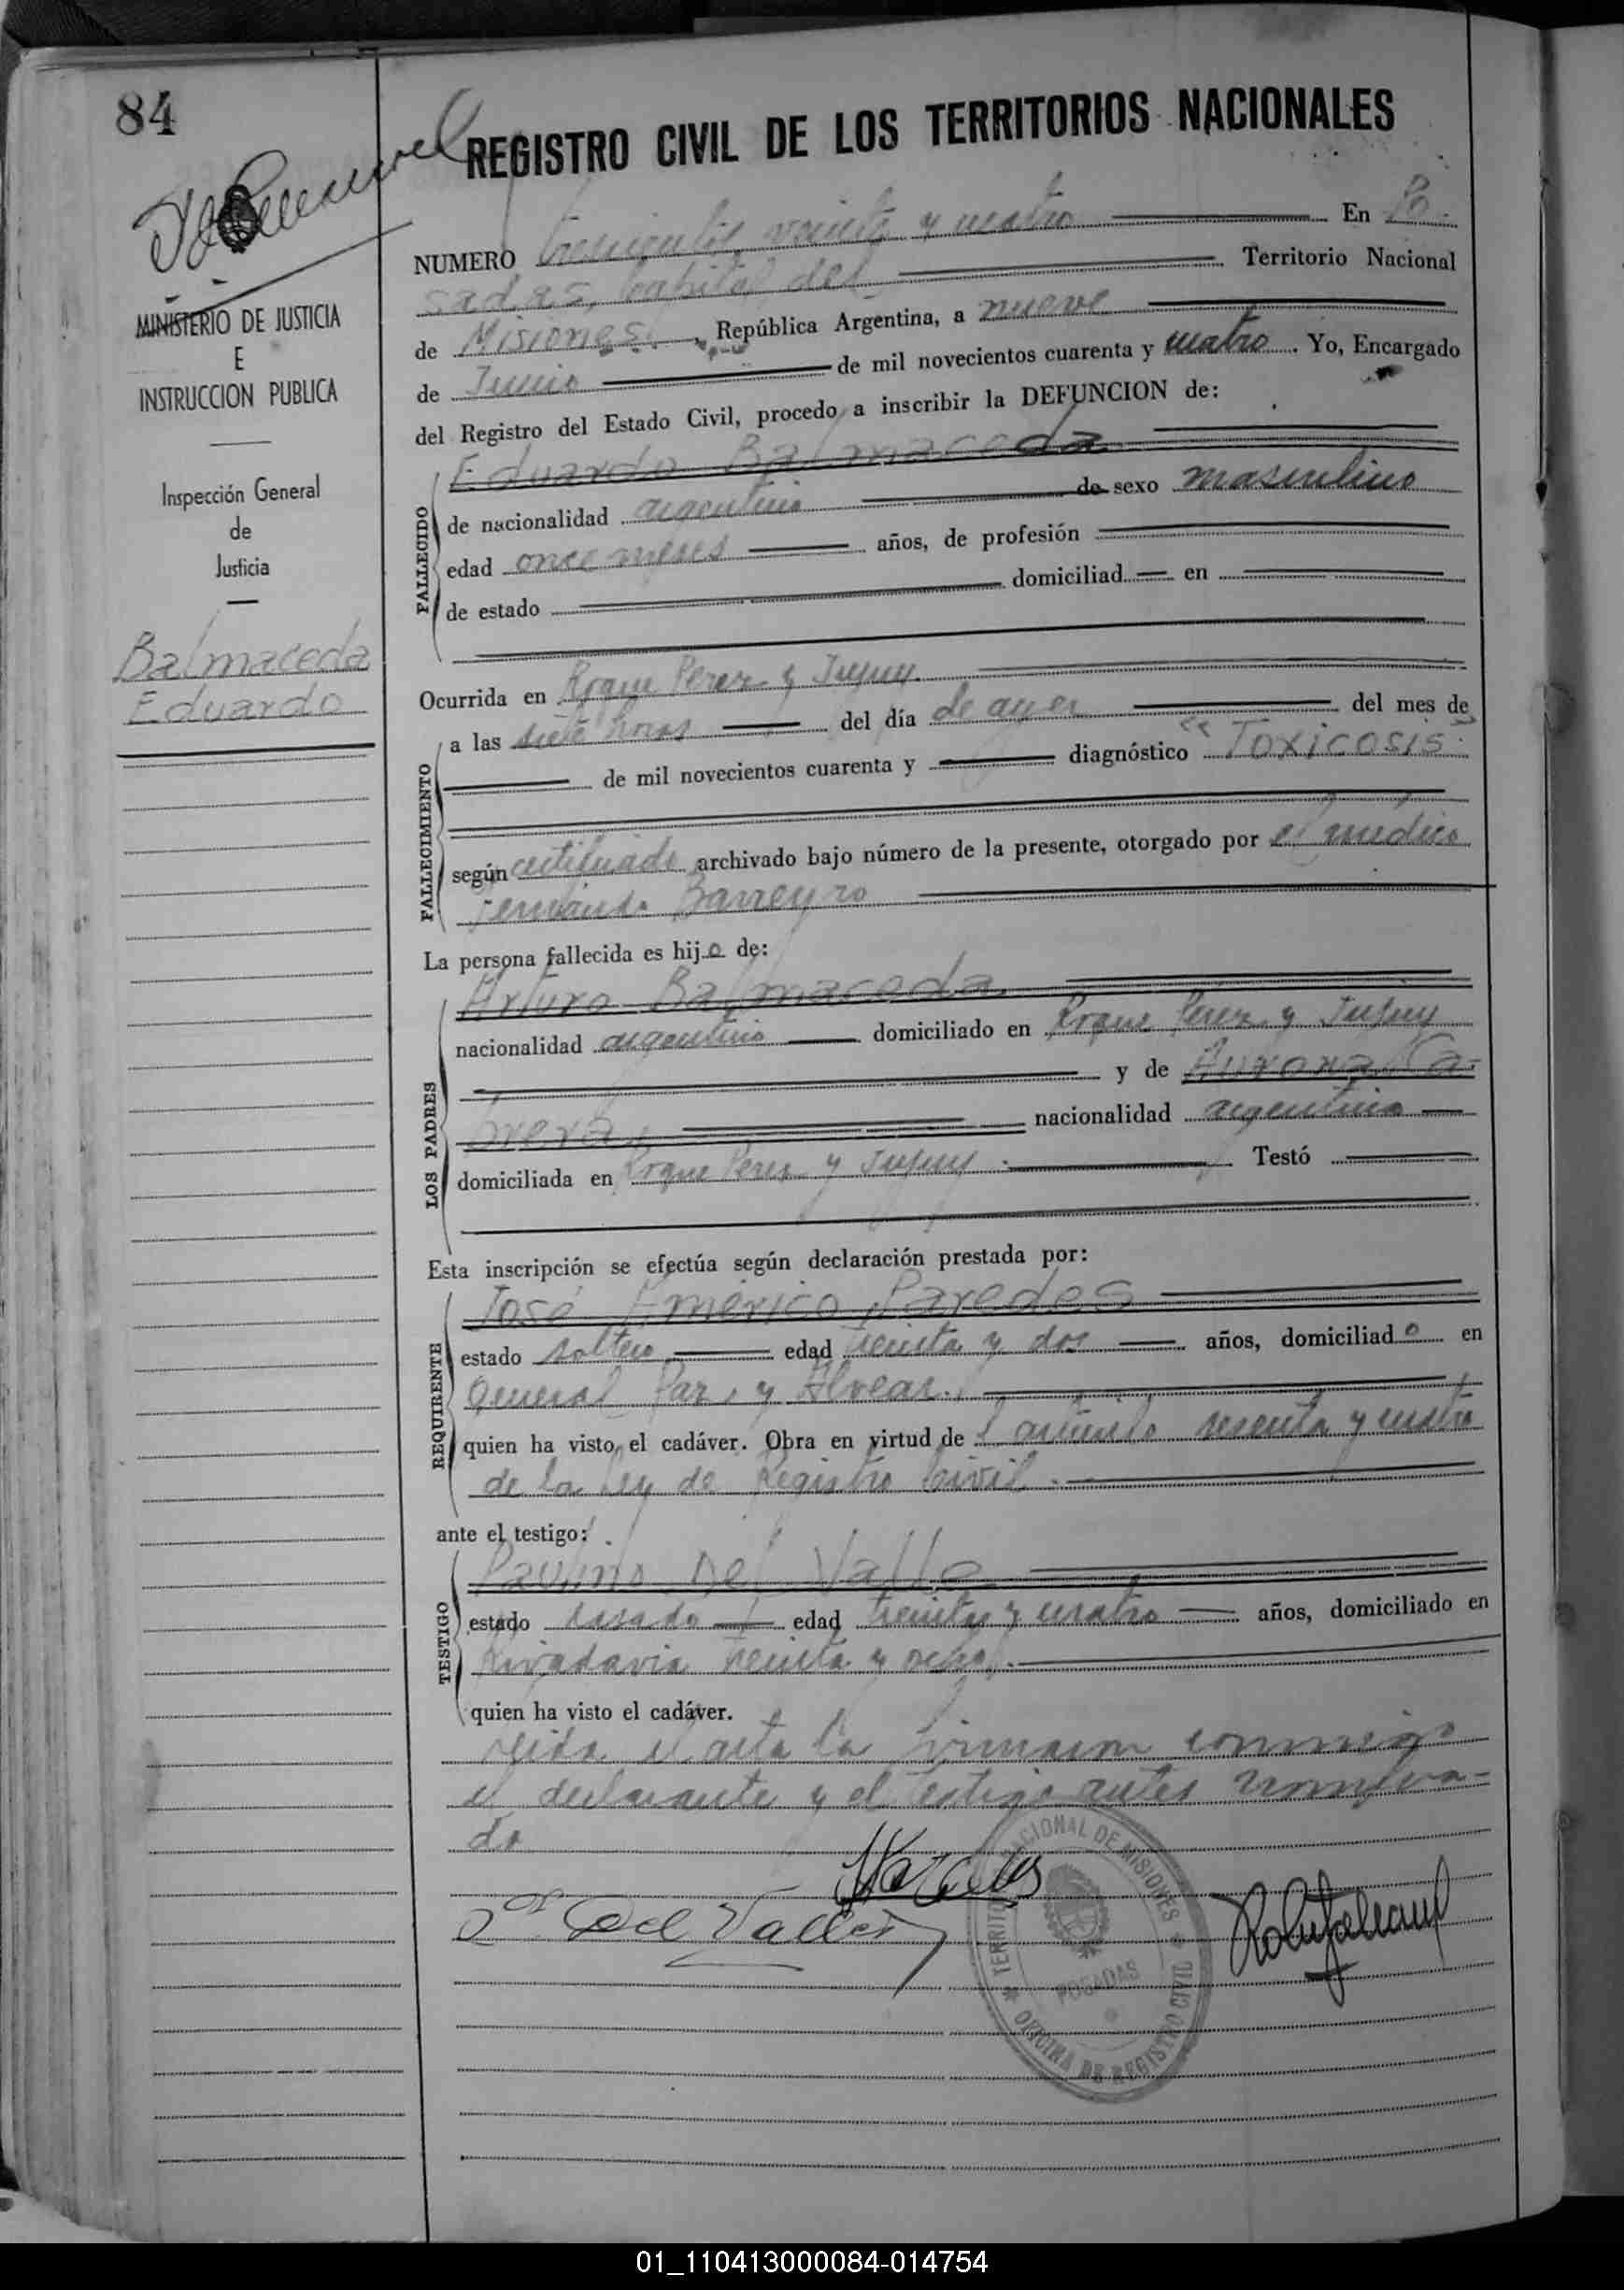 84
REGISTRO CIVIL DE LOS TERRITORIOS NACIONALES
MINISTERIO DE JUSTICIA
E
INSTRUCCION PUBLICA
Inspección General
de
Justicia
Balmaceda
Eduardo
NUMERO trescientos veinte y cuatro En Po-
sadas, Capital del Territorio Nacional
de Misiones, República Argentina, a nueve
de Junio de mil novecientos cuarenta y cuatro. Yo, Encargado
del Registro del Estado Civil, procedo a inscribir la DEFUNCION de:
FALLECIDO
Eduardo Balmaceda
de nacionalidad argentino de sexo masculino
edad once meses años, de profesión
de estado domiciliad en
Ocurrida en Roque Perez y Jujuy.
FALLECIMIENTO
a las siete horas del día de ayer del mes de
de mil novecientos cuarenta y diagnóstico "Toxicosis"
según certificado archivado bajo número de la presente, otorgado por el médico
Barreyro
La persona fallecida es hijo de:
LOS PADRES
Arturo Balmaceda
nacionalidad argentino domiciliado en Roque Pérez y Jujuy
y de Aurora Ca-
brera nacionalidad argentina
domiciliada en Roque Perez y Jujuy. Testó
Esta inscripción se efectúa según declaración prestada por:
REQUIRENTE
José Américo Paredes
estado soltero edad treinta y dos años, domiciliado en
General Paz y Alvear.
quien ha visto el cadáver. Obra en virtud del artículo sesenta y cuatro
de la Ley de Registro Civil.
ante el testigo:
TESTIGO
Paulino Del Valle
estado casado edad treinta y cuatro años, domiciliado en
Rivadavia treinta y ocho.
quien ha visto el cadáver.
Leida el acta la firmaron conmigo
el declarante y el testigo antes nombra-
do
Del Valle
TERRITORIO NACIONAL DE MISIONES
POSADAS
OFICINA DE REGISTRO CIVIL
01_110413000084-014754